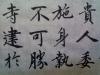 貴人委
施身執
不可勝
寺建於